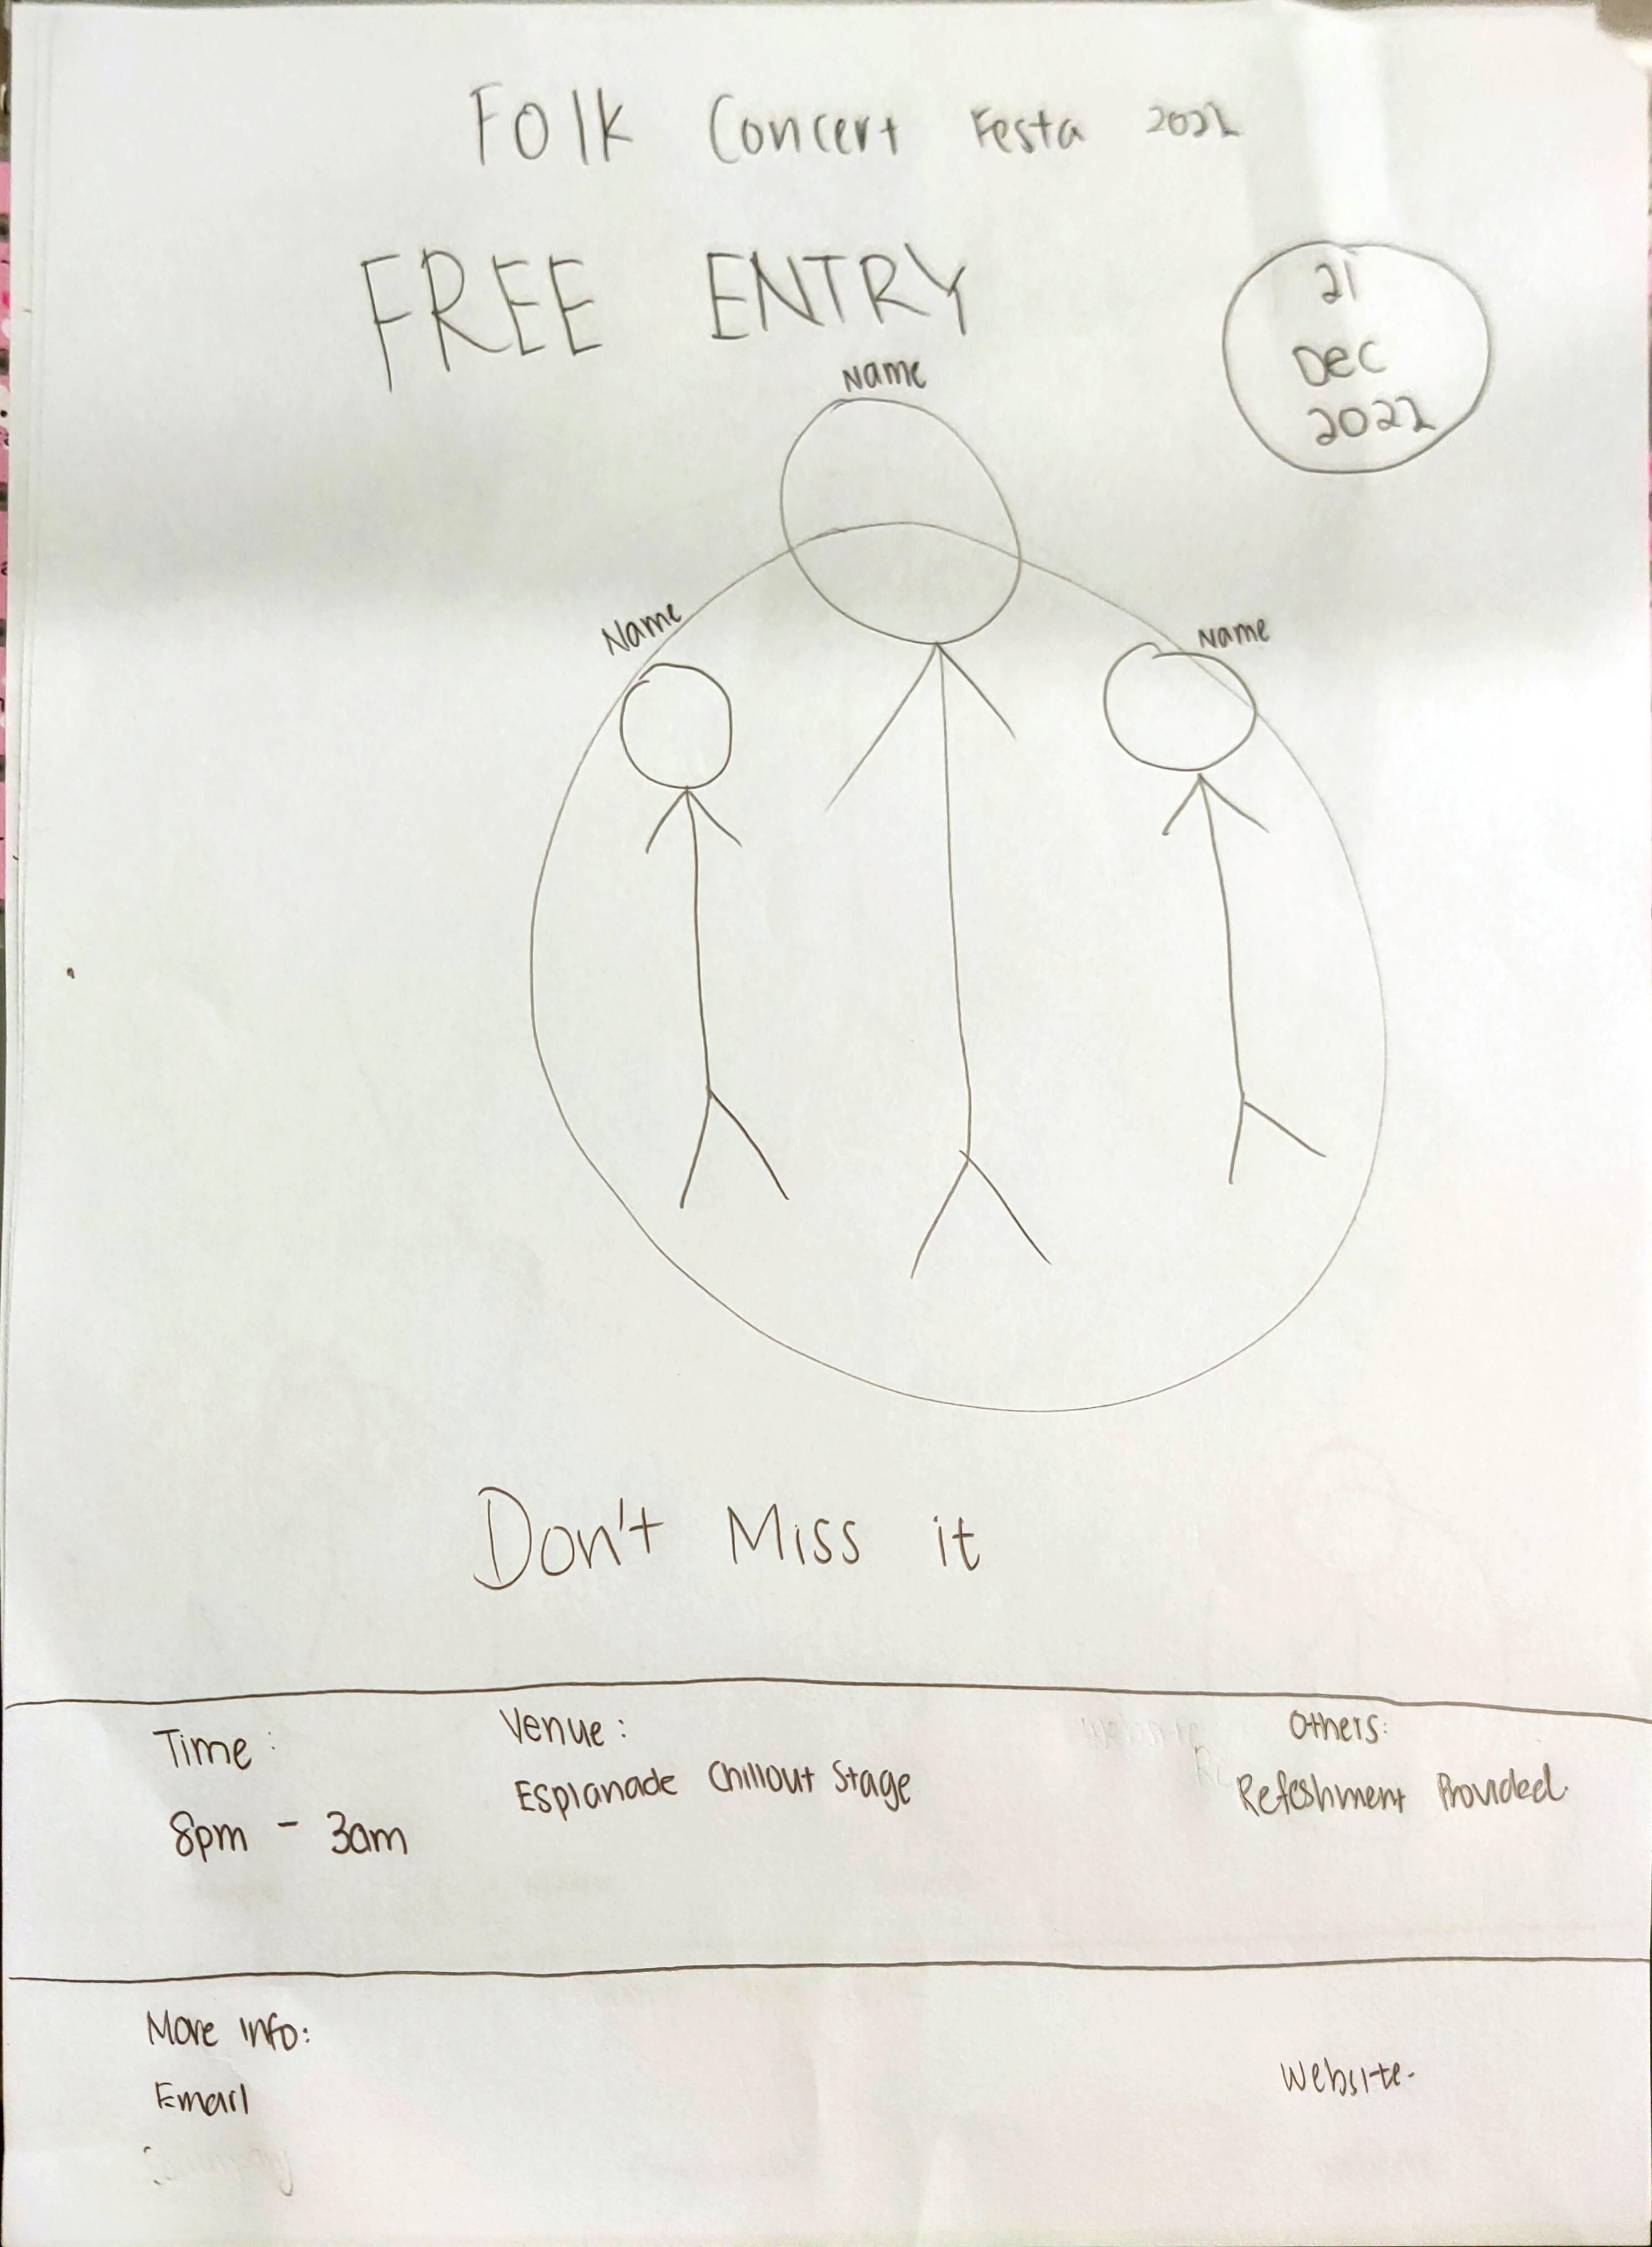 Folk Concert Festa 2022
FREE ENTRY
21
Dec
2022
Name
Name
Name
Don't Miss it
Time :
8pm - 3am
Venue :
Esplanade Chillout Stage
Others:
Refeshment Provided.
More Info:
Email
Website.